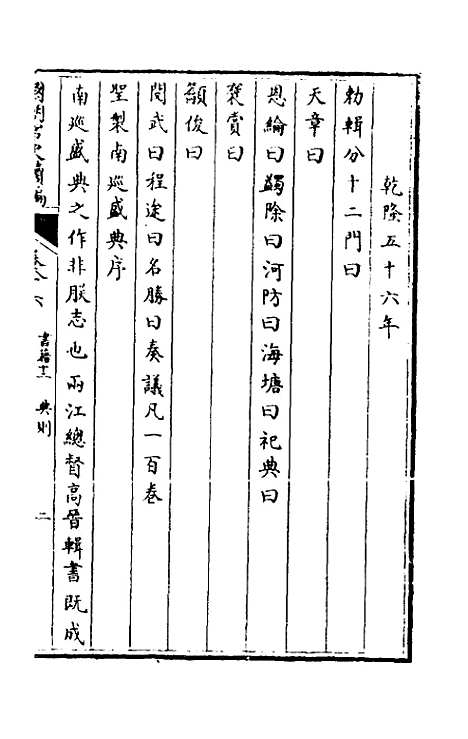 乾隆五十六年
勅輯分十二門曰
天章曰
恩綸曰蠲除曰河防曰海塘曰祀典曰
襃賞曰
籲俊曰
閱武曰程途曰名勝曰奏議凡一百卷
聖製南巡盛典序
南巡盛典之作非朕志也兩江總督高晉輯書既成
國朝宮史續編
書籍十二 典則
二